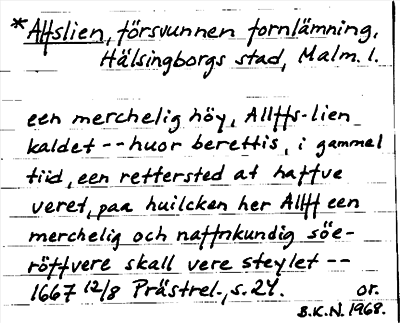 *Alfslien, försvunnen fornlämning,
Hälsingborgs stad, Malm. l.
een merchelig höy, Allffs-lien
kaldet -- huor berettis, i gammel
tiid, een rettersted at haffve
veret, paa huilcken her Allff een
merchelig och naffnkundig söe-
röffvere skall vere steylet --
1667 12/8 Prästrel., s. 24. or.
B.K.N. 1968.